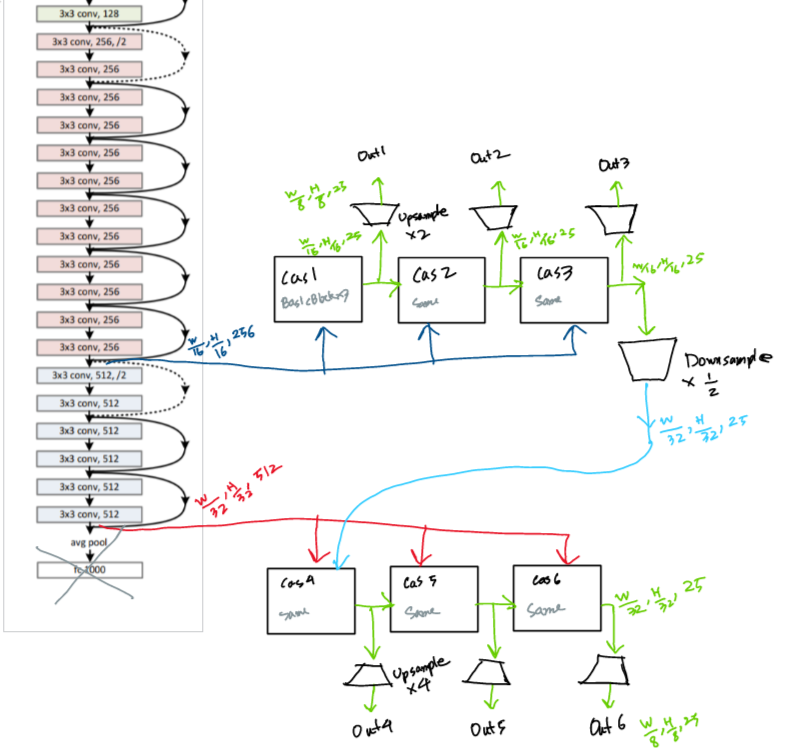 3x3 conv, 128
3x3 conv, 256, /2
3x3 conv, 256
3x3 conv, 256
3x3 conv, 256
3x3 conv, 256
3x3 conv, 256
3x3 conv, 256
3x3 conv, 256
3x3 conv, 256
3x3 conv, 256
3x3 conv, 256
3x3 conv, 256
3x3 conv, 512, /2
3x3 conv, 512
3x3 conv, 512
3x3 conv, 512
3x3 conv, 512
3x3 conv, 512
avg pool
fc 1000
W/16, H/16, 256
W/32, H/32, 512
Out1
Out2
Out3
W/8, H/8, 25
Upsample
x2
W/16, H/16, 25
W/16, H/16, 25
W/16, H/16, 25
Cas1
BasicBlockx9
Cas2
Same
Cas3
Same
Downsample
x 1/2
W/32, H/32, 25
Cas4
Same
Cas5
Same
Cas6
Same
W/32, H/32, 25
Upsample
x4
Out4
Out5
Out6
W/8, H/8, 25